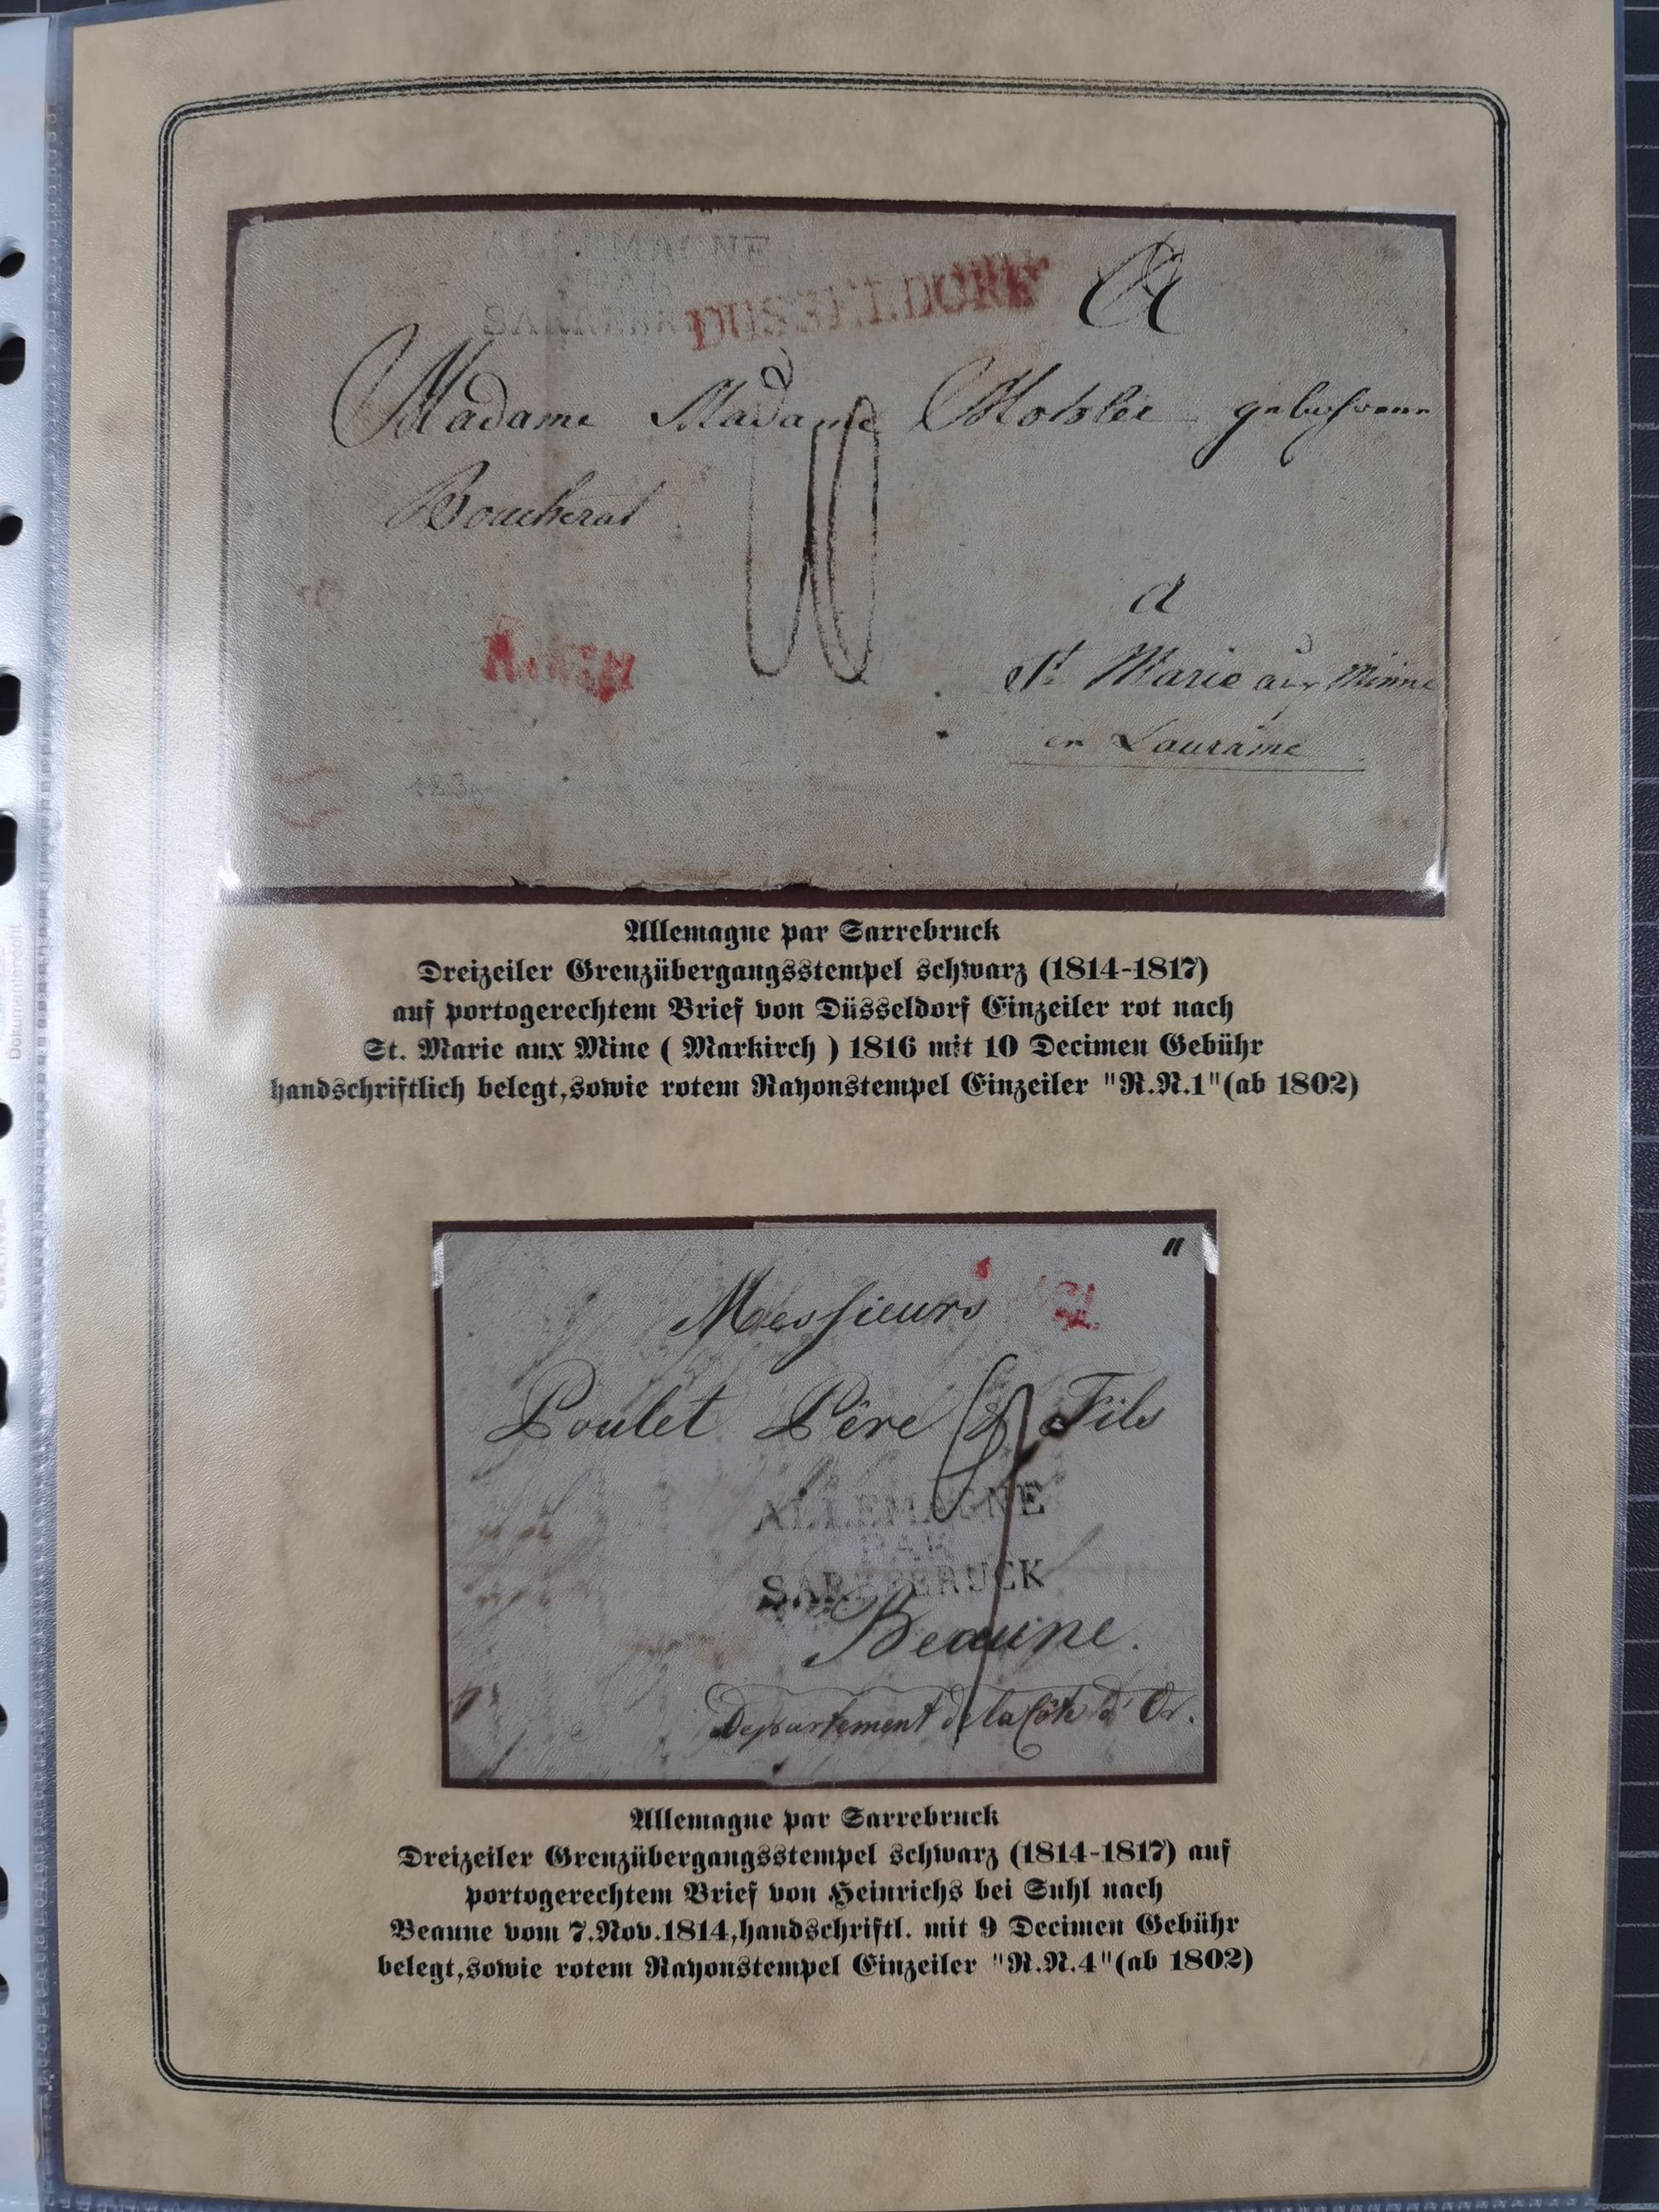 ALLEMAGNE
SARREBR
DUSSELDORF
A
Madame Madame
Boucherat
a
St Marie aux Minne
en Lauraine
Allemagne par Sarrebruck
Dreizeiler Grenzübergangsstempel schwarz (1814-1817)
auf portogerechtem Brief von Düsseldorf Einzeiler rot nach
St. Marie aux Mine ( Markirch ) 1816 mit 10 Decimen Gebühr
handschriftlich belegt,sowie rotem Rayonstempel Einzeiler "R.N.1"(ab 1802)
"
Messieurs
Poulet Père & Fils
ALLEMAGNE
PAR
SARREBRUCK
Beaune.
Departement de la Côte d'Or.
Allemagne par Sarrebruck
Dreizeiler Grenzübergangsstempel schwarz (1814-1817) auf
portogerechtem Brief von Heinrichs bei Suhl nach
Beaune vom 7.Nov.1814,handschriftl. mit 9 Decimen Gebühr
belegt,sowie rotem Rayonstempel Einzeiler "R.N.4"(ab 1802)